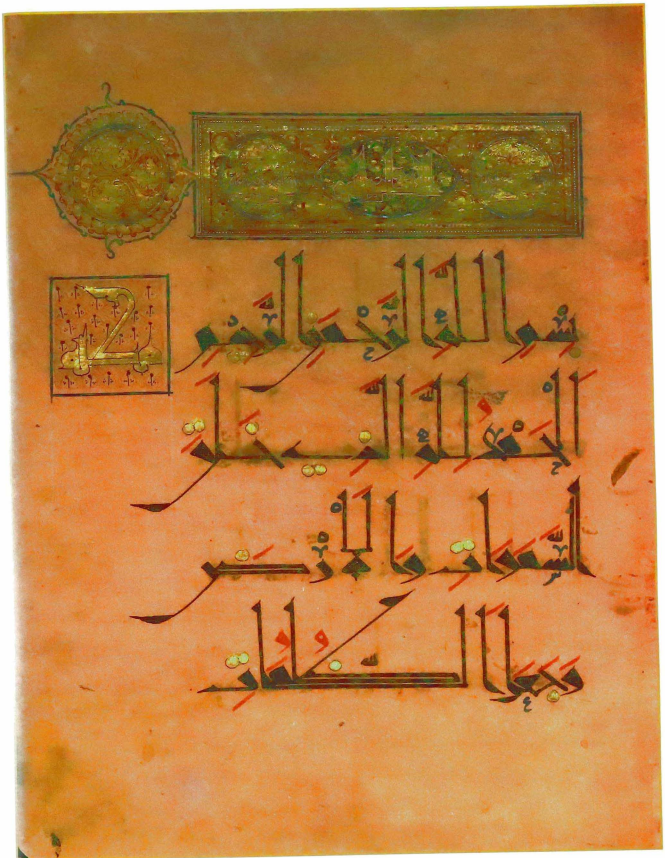 بِسْمِ اللَّهِ الرَّحْمَنِ الرَّحِيمِ
اَلْحَمْدُ لِلَّهِ الَّذِي خَلَقَ
السَّمَوَاتِ وَالْأَرْضَ
وَجَعَلَ الظُّلُمَاتِ